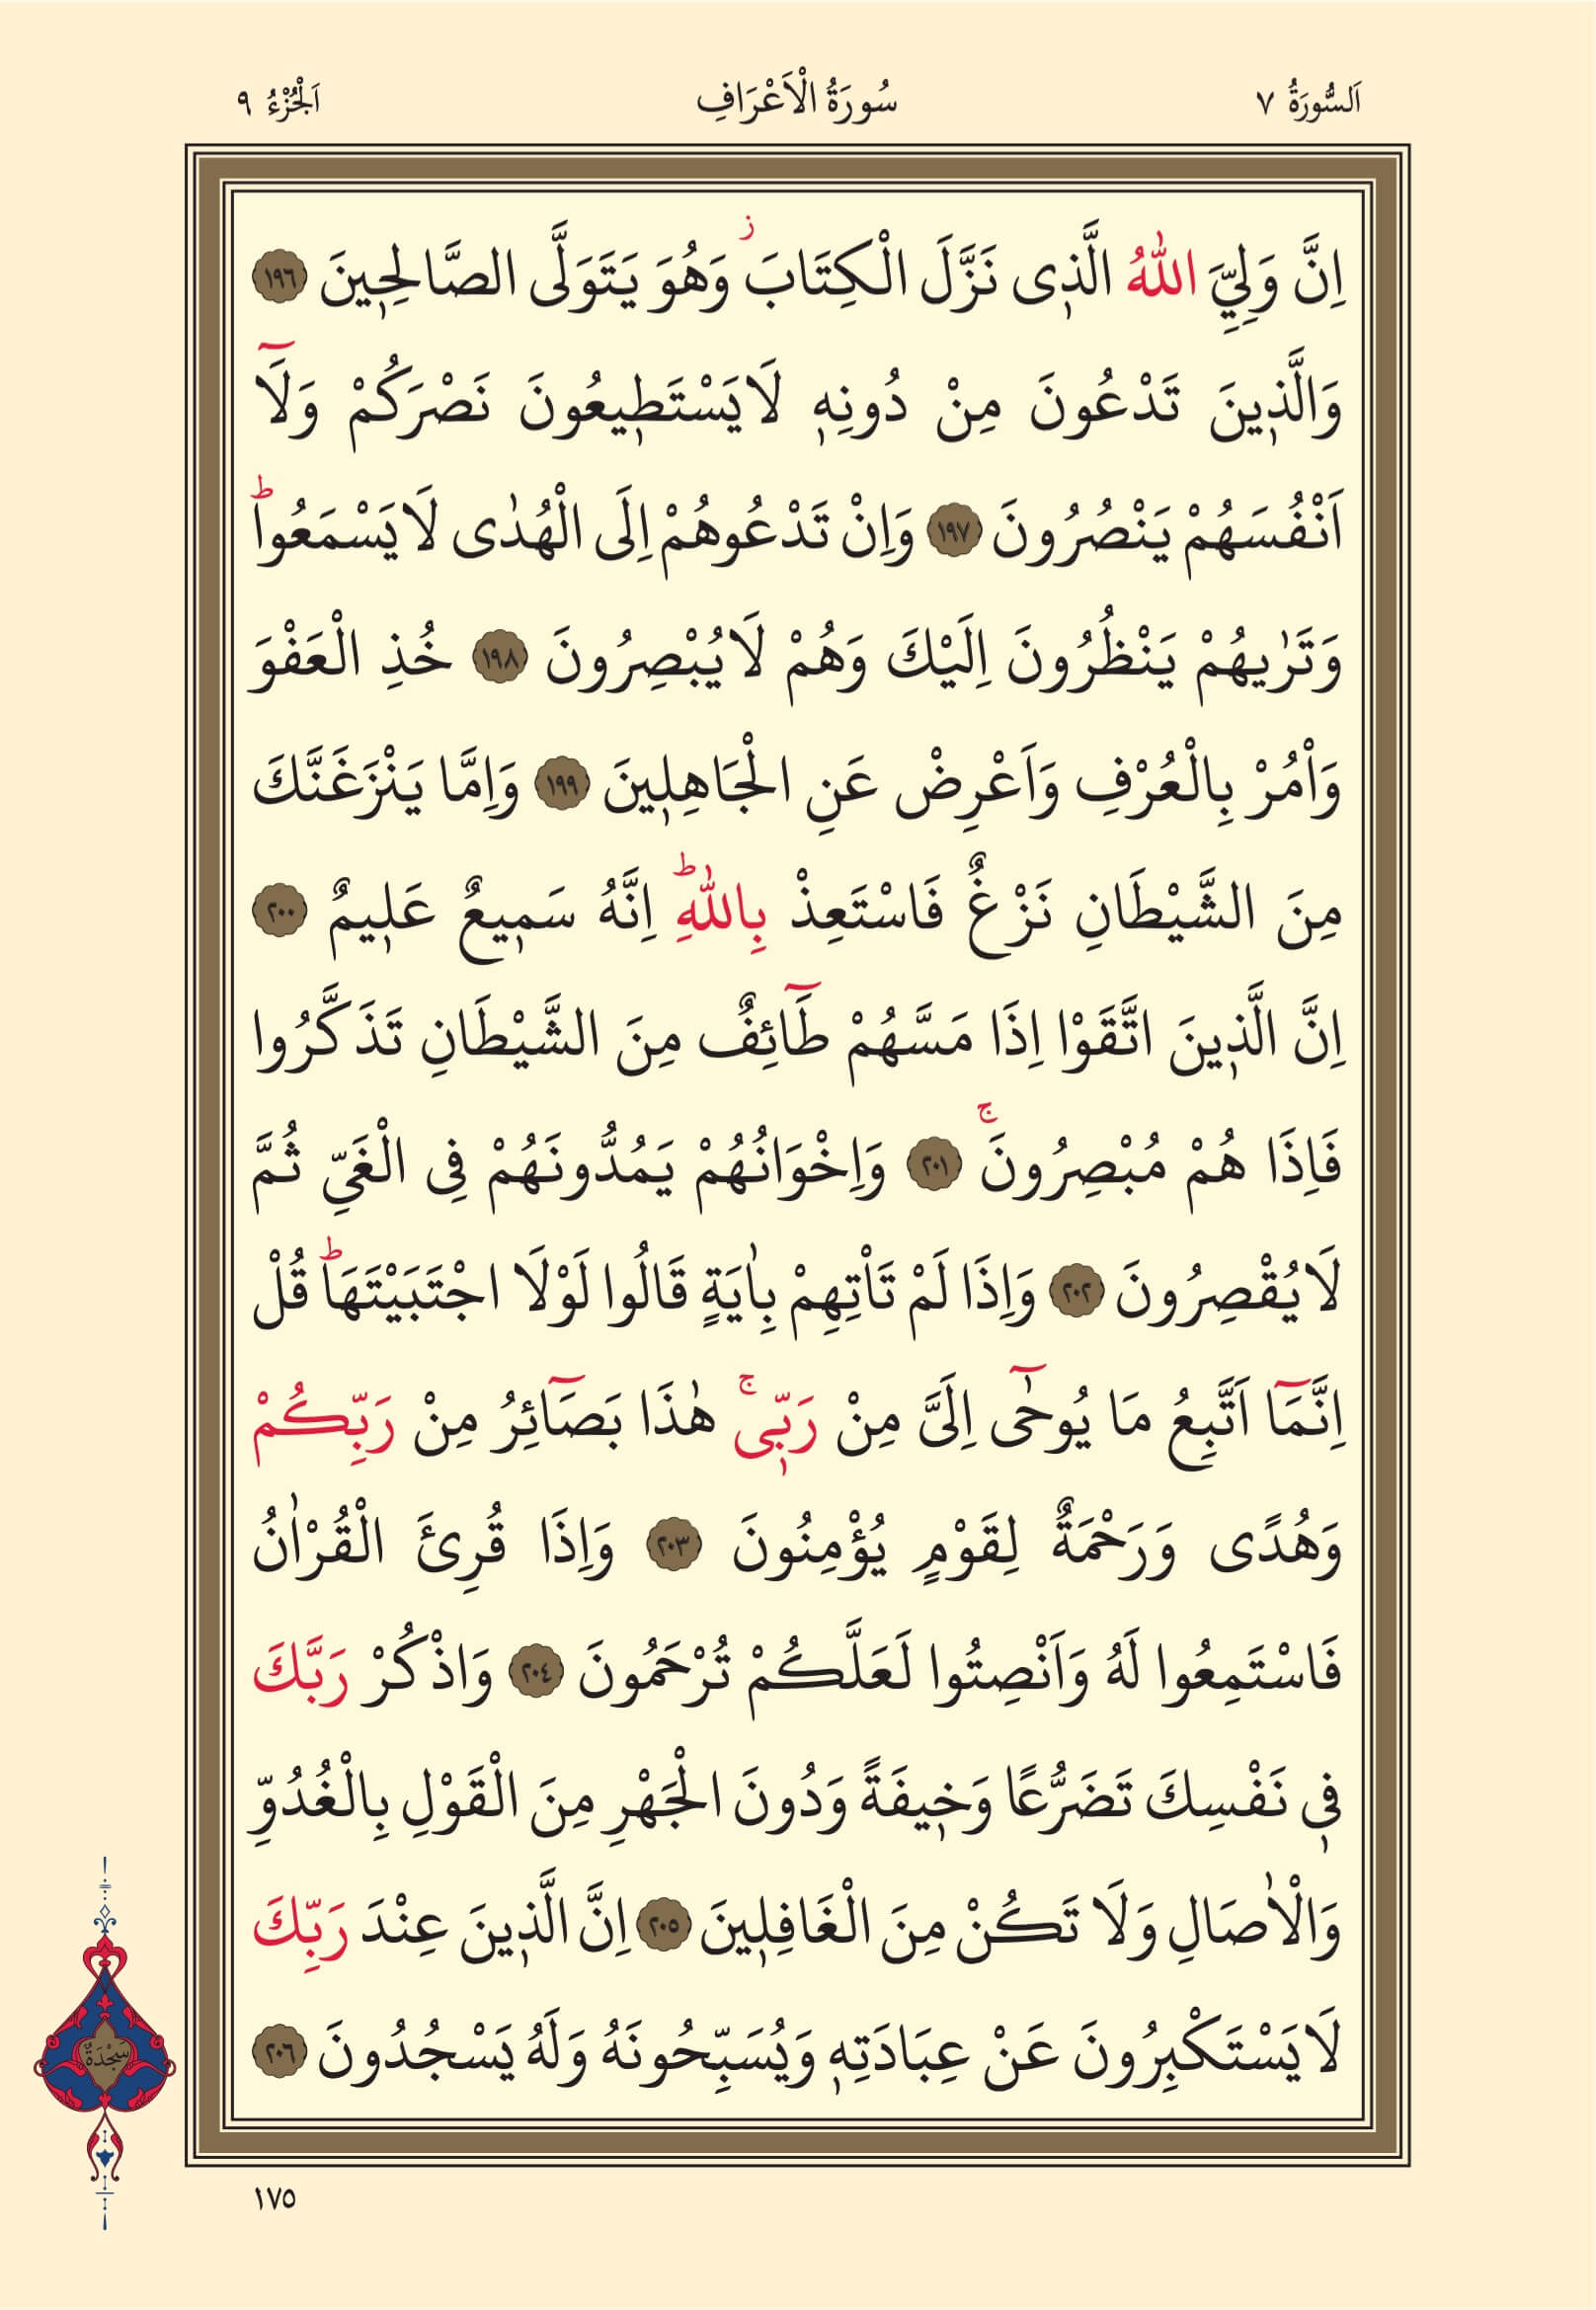 اَلسُّورَةُ ٧
سُورَةُ الْاَعْرَافِ
اَلْجُزْءُ ٩
اِنَّ وَلِيِّيَ اللّٰهُ الَّذ۪ى نَزَّلَ الْكِتَابَۘ وَهُوَ يَتَوَلَّى الصَّالِح۪ينَ ١٩٦
وَالَّذ۪ينَ تَدْعُونَ مِنْ دُونِه۪ لَا يَسْتَط۪يعُونَ نَصْرَكُمْ وَلَٓا
اَنْفُسَهُمْ يَنْصُرُونَ ١٩٧ وَاِنْ تَدْعُوهُمْ اِلَى الْهُدٰى لَا يَسْمَعُواؕ
وَتَرٰيهُمْ يَنْظُرُونَ اِلَيْكَ وَهُمْ لَا يُبْصِرُونَ ١٩٨ خُذِ الْعَفْوَ
وَاْمُرْ بِالْعُرْفِ وَاَعْرِضْ عَنِ الْجَاهِل۪ينَ ١٩٩ وَاِمَّا يَنْزَغَنَّكَ
مِنَ الشَّيْطَانِ نَزْغٌ فَاسْتَعِذْ بِاللّٰهِؕ اِنَّهُ سَم۪يعٌ عَل۪يمٌ ٢٠٠
اِنَّ الَّذ۪ينَ اتَّقَوْا اِذَا مَسَّهُمْ طَٓائِفٌ مِنَ الشَّيْطَانِ تَذَكَّرُوا
فَاِذَا هُمْ مُبْصِرُونَۚ ٢٠١ وَاِخْوَانُهُمْ يَمُدُّونَهُمْ فِى الْغَيِّ ثُمَّ
لَا يُقْصِرُونَ ٢٠٢ وَاِذَا لَمْ تَاْتِهِمْ بِاٰيَةٍ قَالُوا لَوْلَا اجْتَبَيْتَهَاؕ قُلْ
اِنَّمَٓا اَتَّبِعُ مَا يُوحٰٓى اِلَيَّ مِنْ رَبّ۪ىۚ هٰذَا بَصَٓائِرُ مِنْ رَبِّكُمْ
وَهُدًى وَرَحْمَةٌ لِقَوْمٍ يُؤْمِنُونَ ٢٠٣ وَاِذَا قُرِئَ الْقُرْاٰنُ
فَاسْتَمِعُوا لَهُ وَاَنْصِتُوا لَعَلَّكُمْ تُرْحَمُونَ ٢٠٤ وَاذْكُرْ رَبَّكَ
ف۪ى نَفْسِكَ تَضَرُّعًا وَخ۪يفَةً وَدُونَ الْجَهْرِ مِنَ الْقَوْلِ بِالْغُدُوِّ
وَالْاٰصَالِ وَلَا تَكُنْ مِنَ الْغَافِل۪ينَ ٢٠٥ اِنَّ الَّذ۪ينَ عِنْدَ رَبِّكَ
لَا يَسْتَكْبِرُونَ عَنْ عِبَادَتِه۪ وَيُسَبِّحُونَهُ وَلَهُ يَسْجُدُونَ ٢٠٦
سَجْدَةٌ
١٧٥